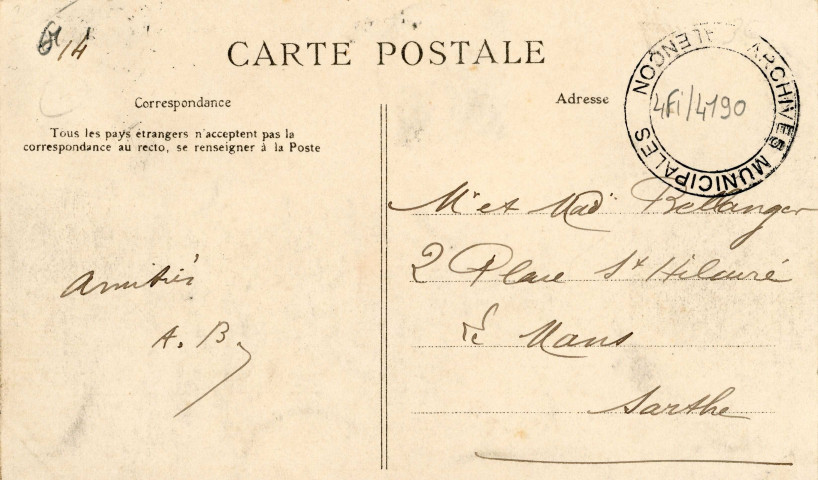 CARTE POSTALE
Correspondance
Tous les pays étrangers n'acceptent pas la
correspondance au recto, se renseigner à la Poste
Amitiés
A. B.
Adresse
ARCHIVES MUNICIPALES ALENÇON
4Fi/4190
Mr et Mad Bellanger
2 Place St Hilaire
Le Mans
Sarthe